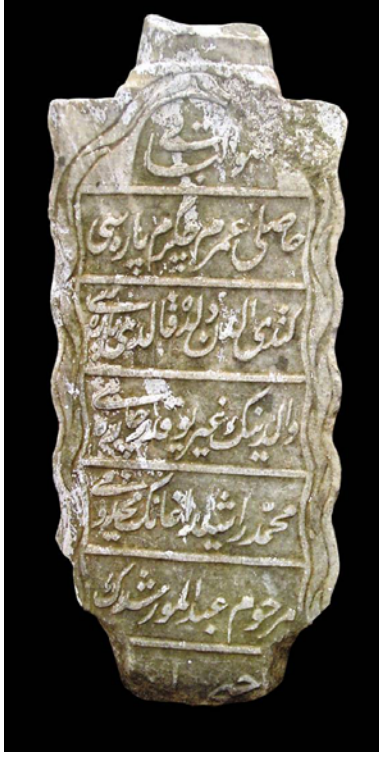 هو الباقی
حاصلی عمرم جیگرم پاره سی
کندی الدن دلده قالدی یاره سی
والدینک غیر یوقدر چاره سی
محمد راشد اغانک مخدومی
مرحوم عبد